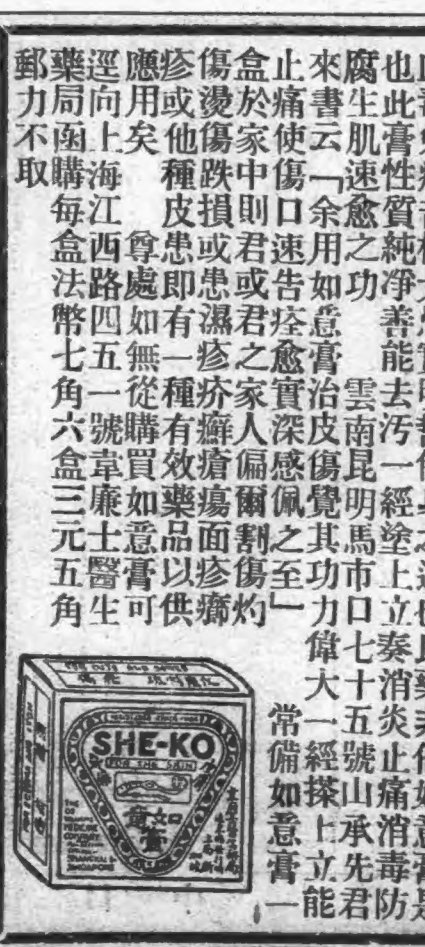 也此膏性質純淨善能去汚一經塗上立奏消炎止痛消毒防
腐生肌速愈之功　雲南昆明馬市口七十五號山承先君
來書云「余用如意膏治皮傷覺其功力偉大一經搽上立能
止痛使傷口速告痊愈實深感佩之至」　常備如意膏一
盒於家中則君或君之家人偏爾割傷灼
傷燙傷跌損或患濕疹疥癬瘡瘍面疹癤
疹或他種皮患即有一種有效藥品以供
應用矣　尊處如無從購買如意膏可
逕向上海江西路四五一號韋廉士醫生
藥局函購每盒法幣七角六盒三元五角
郵力不取
SHE-KO
FOR THE SKIN
如意膏